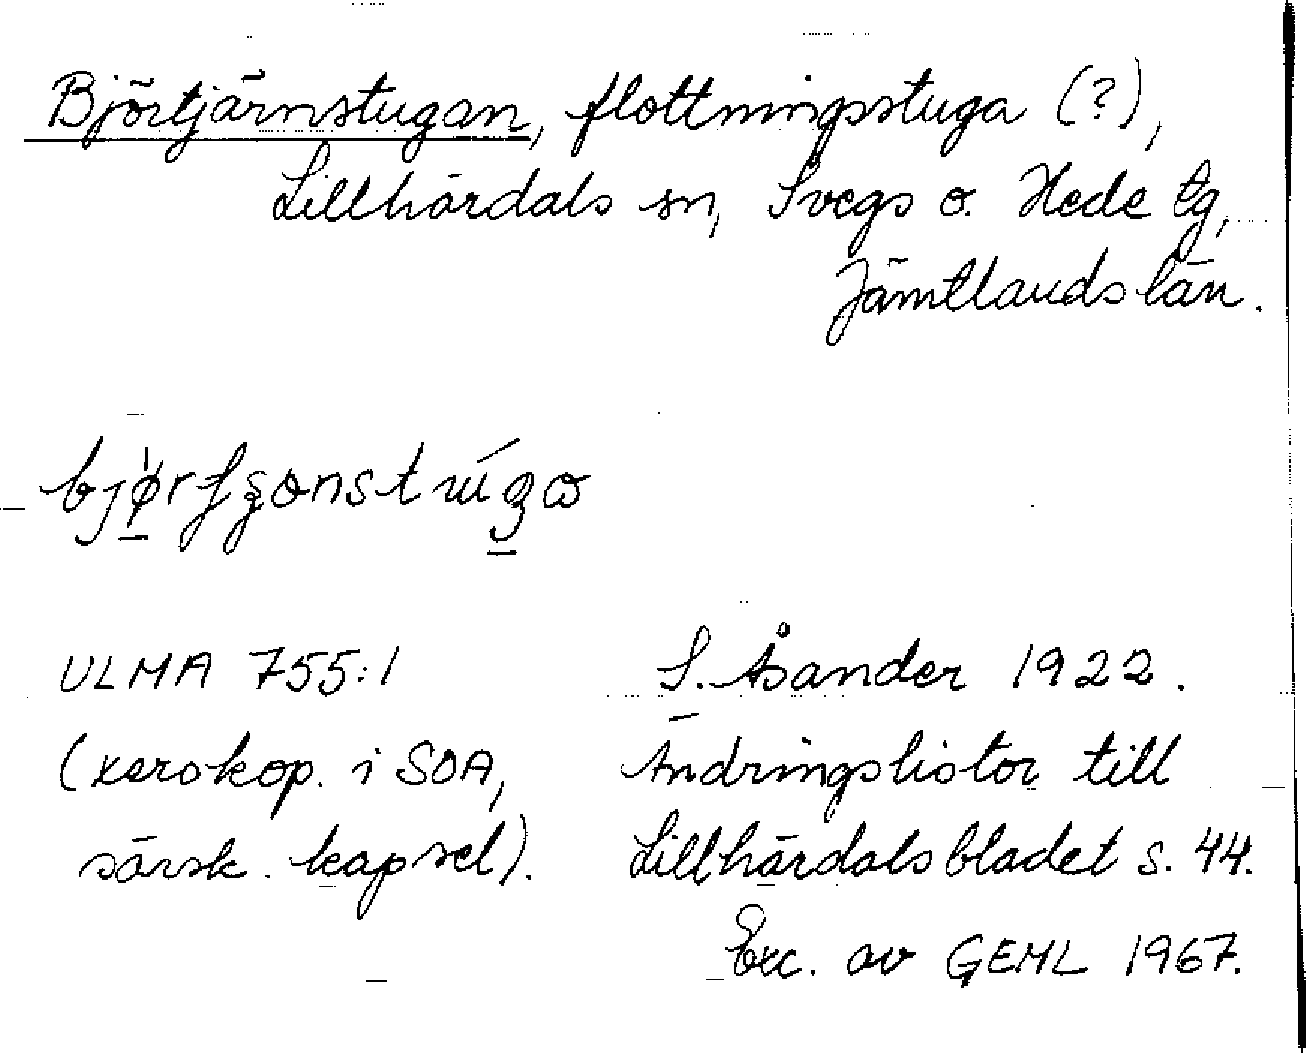 Björtjärnstugan, flottningsstuga (?),
Lillhärdals sn, Svegs o. Hede tg,
Jämtlands län.
ULMA 755:1
(xerokop. i SOA,
särsk. kapsel).
S. Åsander 1922.
Ändringslistor till
Lillhärdalsbladet s. 44.
Exc. av GEML 1967.